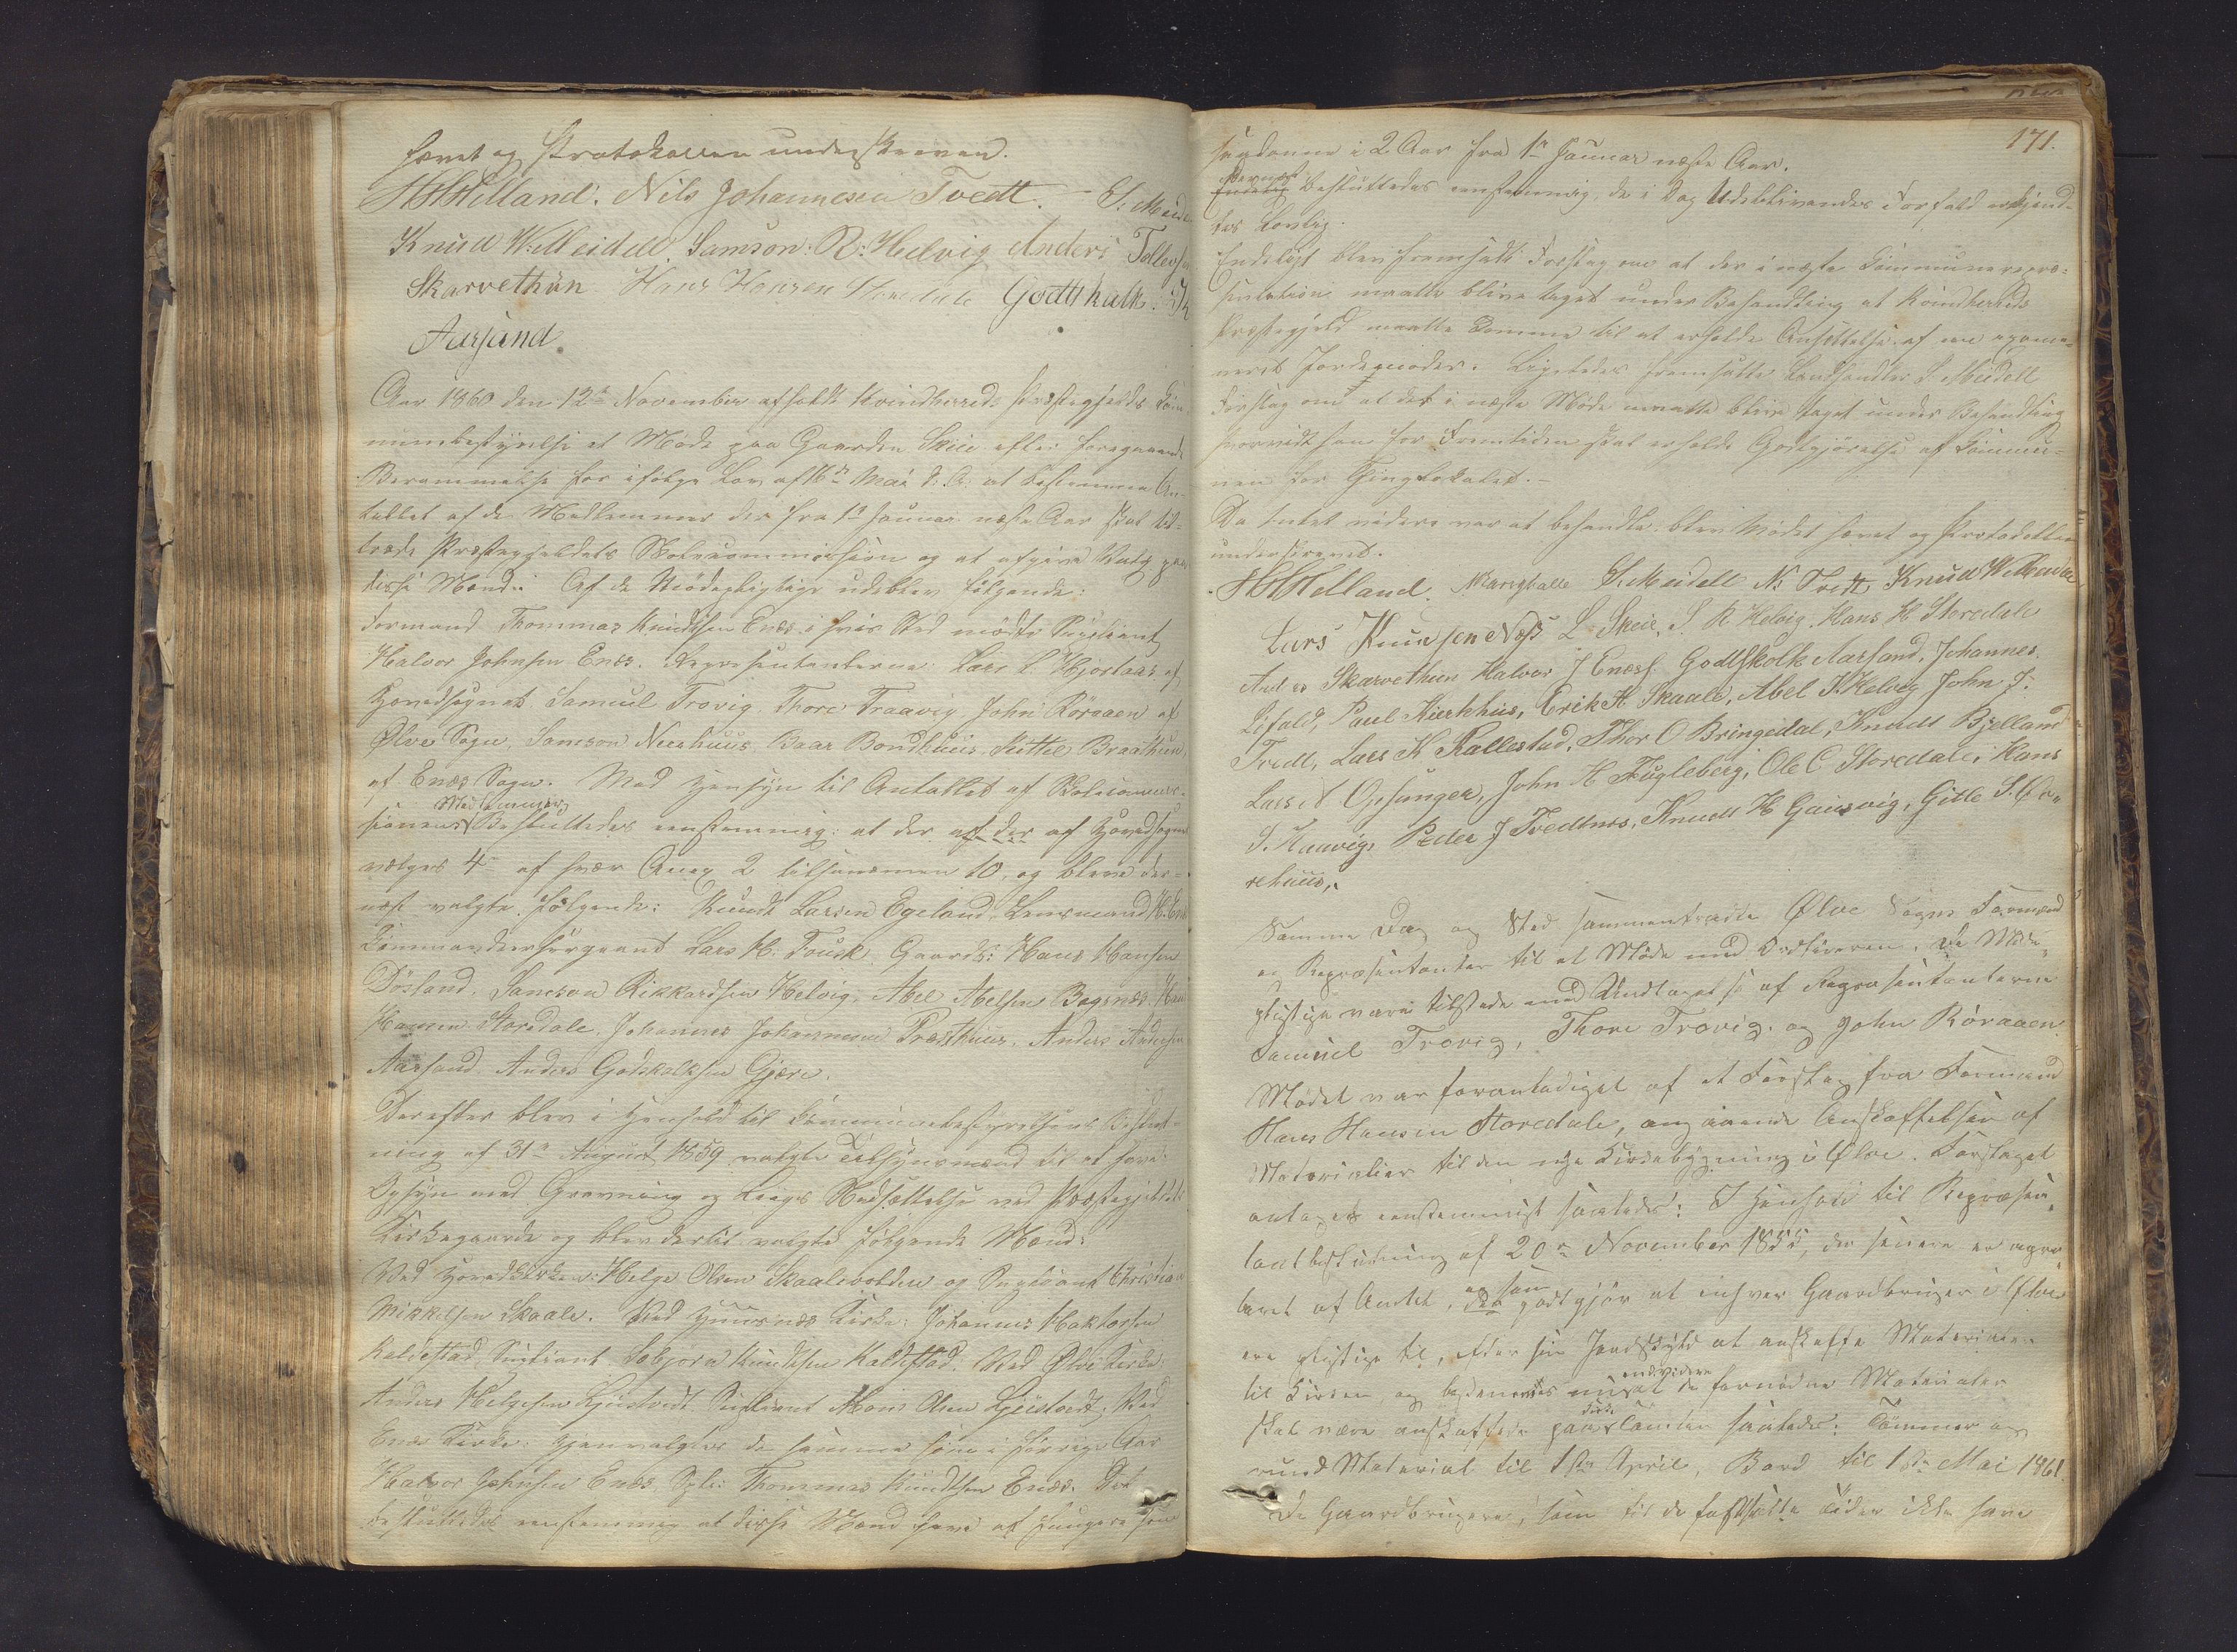 hævet og Protokollen underskreven.
HHHelland. Nils Johannesen Tvedt. – S. Meide
Knud W. Meidell. Samson R: Helvig Anders Tollevsen
Skarvethun Hans Hansen Storedale Godtskalk
Aarsand.
Aar 1860 den 12te November afholdt Kvindherreds Præstegjelds Com-
munebestyrelse et Møde paa Gaarden Skeie efter foregaaende
Berammelse for ifølge Lov af 16de Mai d: A: at bestemme An-
tallet af de Medlemmer der fra 1ste Januar næste Aar skal til-
træde Præstegjeldets Skolecommission og at afgive Valg paa
disse Mænd. Af de Mødepligtige udeblev følgende:
Formand Thommas Knudtsen Enes i hvis Sted mødte Supleant
Halvor Johnsen Enes. Repræsentanterne Lars L. Hjortaas af
Hovedsognet Samuel Trovig Thore Traavig John Røraaen af
Ølve Sogn, Samson Neerhuus, Baar Bondhuus, Kittel Braathun,
af Enes Sogn. Med Hensyn til Antallet af Skolecommis-
sionens Medlemmer Besluttedes eenstemmig: at der af der af Hovedsognet
vælges 4re af hver Anex 2 tilsammen 10, og bleve der-
næst valgte følgende: Knudt Larsen Egeland, Lensmand
Commandeersergeant Lars H. Tousk, Gaardb: Hans Hansen
Døsland. Samson Rikkardsen Helvig, Abel Abelsen Bogsnes. Hans
Hansen Storedale, Johannes Johannesen Præsthuus. Anders Andersen
Aarsand. Anders Godskalksen Gjære.
Derefter blev i Henhold til Communebestyrelsens Beslut-
ning af 31te August 1859 valgte Tilsynsmænd til at have
Opsyn med Gravning og Liigs Nedsættelse ved Præstegjeldets
Kirkegaarde og blev dertil valgte følgende Mænd:
Ved Hovedkirken: Helge Olsen Skaalevolden og Supleant Christian
Mikkelsen Skaale. Ved Huusnes Kirke: Johannes Haktorsen
Kaldestad Supleant Sebjørn Knudtsen Kaldestad. Ved Ølve Kirke:
Anders Helgesen Ljustvedt Supleant Mons Olsen Ljustvedt. Ved
Enes Kirke: Gjenvalgtes de samme som i forrige Aar
Halvor Johnsen Enes, Supl: Thommas Knudtsen Enes. Det
besluttedes eenstemmig at disse Mænd have at fungere som
171.
saadanne i 2 Aar fra 1ste Januar næste Aar.
Dernæst besluttedes eenstemmig, de i Dag Udeblivendes Forfald erkjend-
tes lovlig.
Endeligt blev fremsatt Forslag om at der i næste Communerepræ-
sentation maatte blive taget under Behandling at Kvindherreds
Præstegjeld maatte komme til at erholde Ansettelse af en exami-
neret Jordemoder. Ligeledes fremsatte Landhandler S. Meidell
Forslag om at det i næste Møde maatte blive taget under Behandling
hvorvidt han for Fremtiden skal erholde Godtgjørelse af Commu-
nen for Tinglokalet.–
Da Intet videre var at behandle blev Mødet hævet og Protokollen
underskrevet.
HHHelland. S. Meidell N. Tvedt Knud W Meidell
Lars Knudsen Næss L Skeie, S. R Helvig. Hans H Storedale
Anders Skarvethun Halvor J Eness. Godtskolk Aarsand, Johannes.
Lifald, Paul Kierkhus, Erik H Skaale, Abel K Helvig John J.
Tvedt, Lars K Kallestad, Thor O Bringedal, Knudt Bjelland
Lars N Opsanger, John H Fugleberg, Ole C Storedale, Hans
S. Haavig, Peder J Tvedtnes, Knudt H Gausvig, Gitle S. Ov-
rehuus.
Samme Dag og Sted sammentraadte Ølve Sogns Formænd
og Repræsentanter til et Møde med Ordføreren. De Møde-
pligtige vare tilstede med Undtagelse af Repræsentanterne
Samuel Trovig, Thore Trovig. og John Røraaen
Mødet var foranlediget af et Forslag fra Formand
Hans Hansen Storedale, angaaende Anskaffelsen af
Materialier til den nye Kirkebygning i Ølve. Forslaget
antoges eenstemmigt saaledes: I Henhold til Repræsen-
tantbeslutning af 20de November 1855, der senere er appro-
beret af Amtet, og som godtgjør at enhver Gaardbruger i Ølve
ere pligtige til, efter sin Jordskyld at anskaffe Materialer
til Kirken og bestemmes endvidere at de fornødne Materialer
skal være anskaffede paa Kirke Tomten saaledes: Tømmer og
rund Material til 1ste April, Bord til 1ste Mai 1861.
De Gaardbrugere, som til de fastsatte Tider ikke have